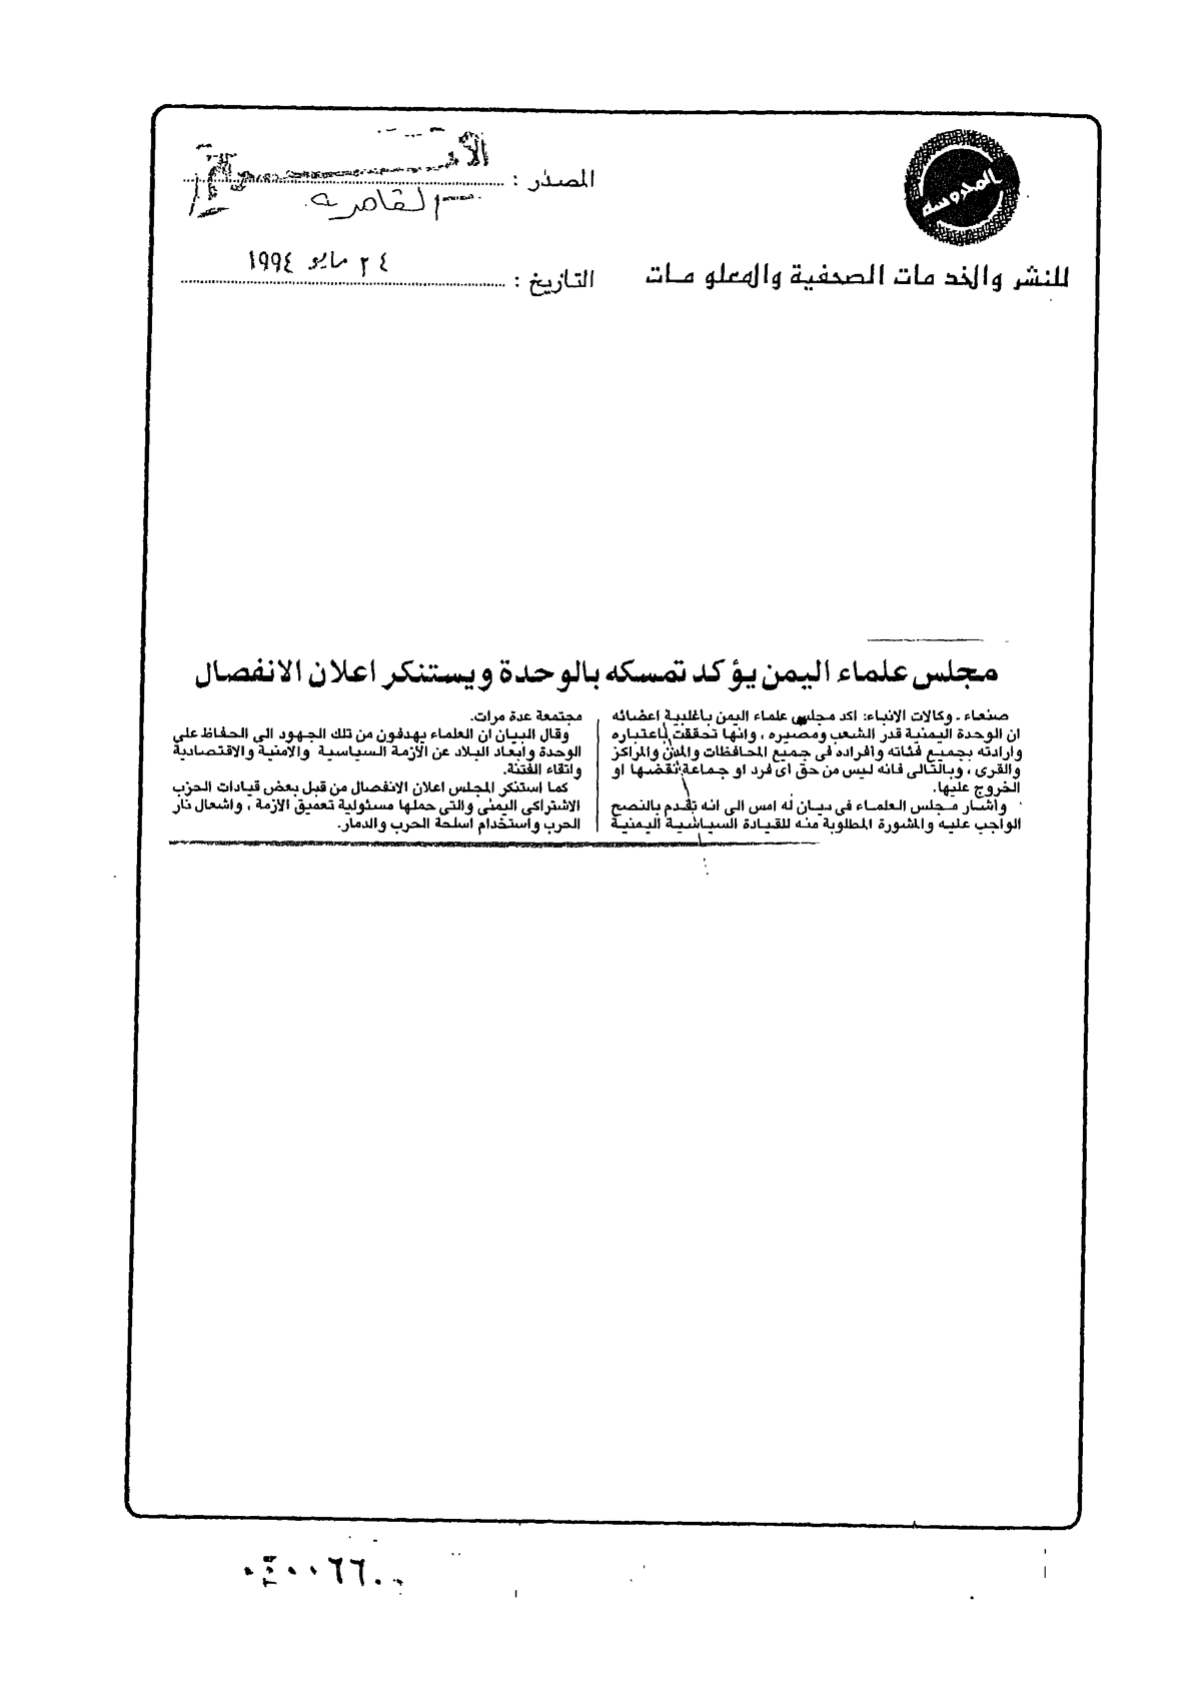 المحروسة
للنشر والخدمات الصحفية والمعلومات
المصدر :
القاهرة
التاريخ : ٢٤ مايو ١٩٩٤
مجلس علماء اليمن يؤكد تمسكه بالوحدة ويستنكر اعلان الانفصال
صنعاء ـ وكالات الانباء: اكد مجلس علماء اليمن باغلبية اعضائه
ان الوحدة اليمنية قدر الشعب ومصيره ، وانها تحققت باعتباره
وارادته بجميع فئاته وافراده فى جميع المحافظات والمدن والمراكز
والقرى ، وبالتالى فانه ليس من حق اى فرد او جماعة نقضها او
الخروج عليها.
واشار مجلس العلماء فى بيان له امس الى انه تقدم بالنصح
الواجب عليه والمشورة المطلوبة منه للقيادة السياسية اليمنية
مجتمعة عدة مرات.
وقال البيان ان العلماء يهدفون من تلك الجهود الى الحفاظ على
الوحدة وابعاد البلاد عن الأزمة السياسية والامنية والاقتصادية
واتقاء الفتنة.
كما استنكر المجلس اعلان الانفصال من قبل بعض قيادات الحزب
الاشتراكى اليمنى والتى حملها مسئولية تعميق الازمة ، واشعال نار
الحرب واستخدام اسلحة الحرب والدمار.